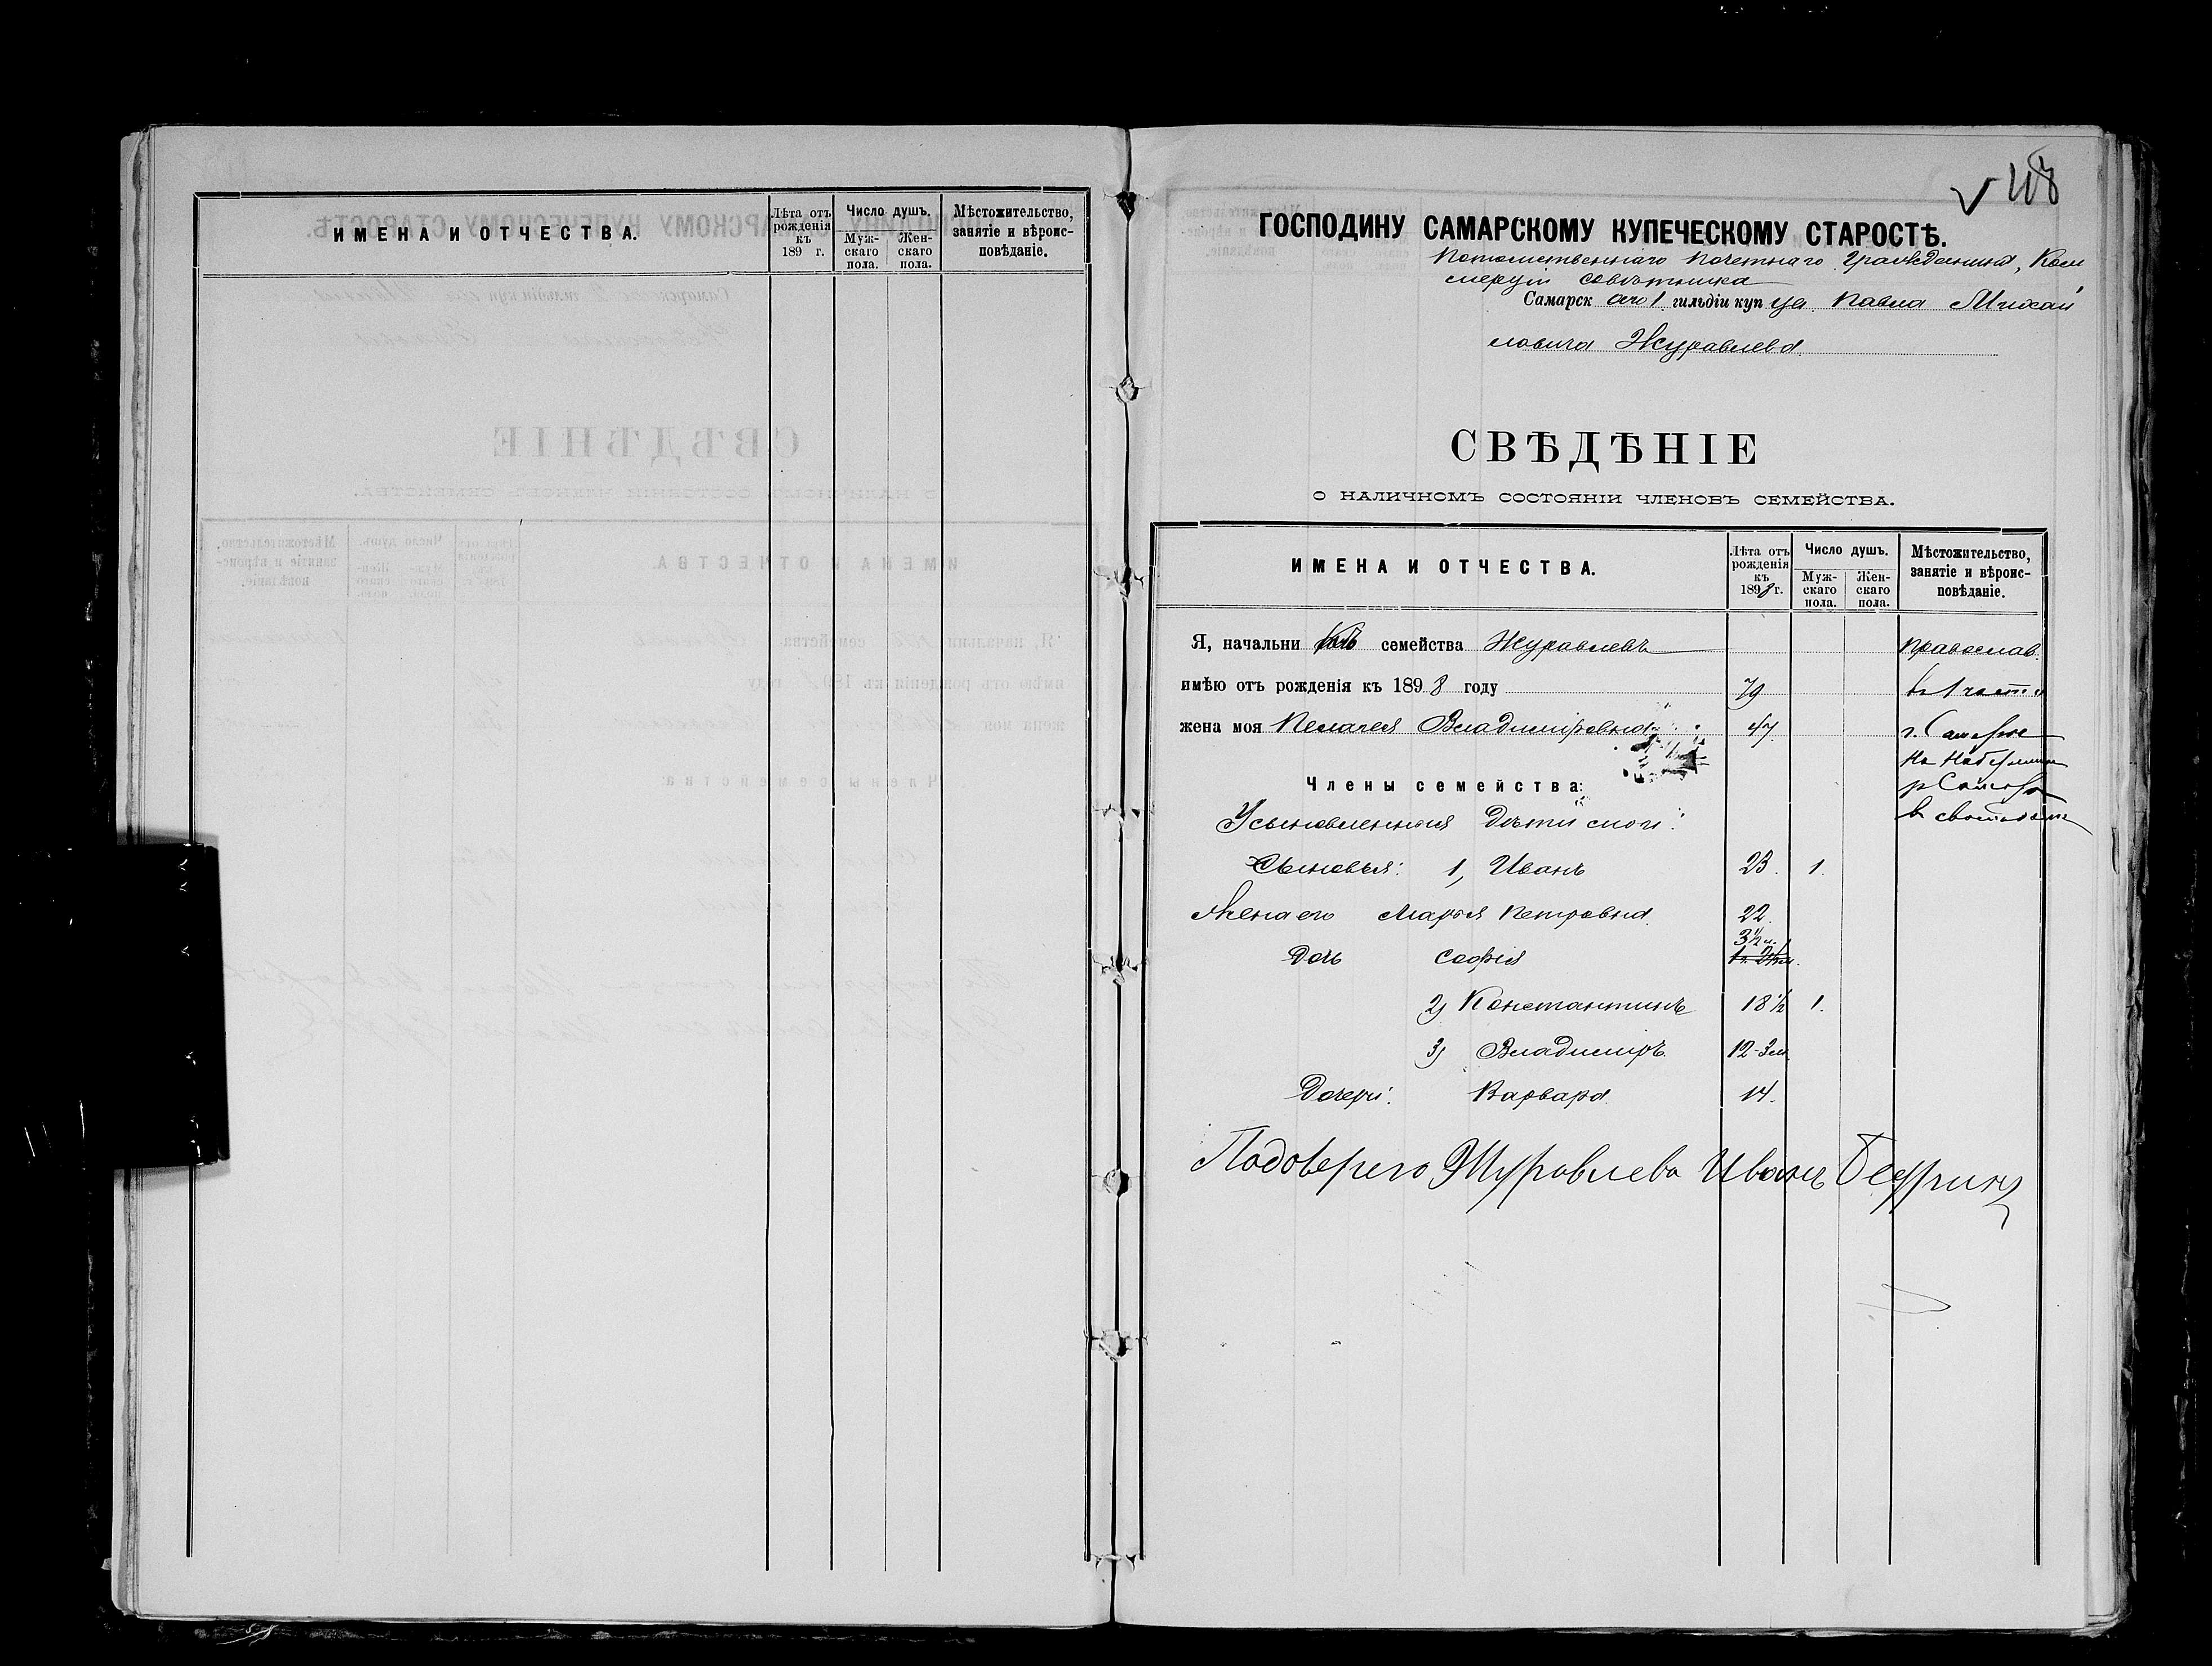 ИМЕНА И ОТЧЕСТВА.
Лѣта отъ рожденія къ 189 г.
Число душъ.
Муж-скаго пола.
Жен-скаго пола.
Мѣстожительство, занятіе и вѣроис-повѣданіе.
ГОСПОДИНУ САМАРСКОМУ КУПЕЧЕСКОМУ СТАРОСТѢ.
Потомственнаго Почетнаго Гражданина, Ком
мерціи совѣтника
Самарскаго 1 гильдіи купца Павла Михай
ловича Журавлева
СВѢДѢНІЕ
О НАЛИЧНОМЪ СОСТОЯНІИ ЧЛЕНОВЪ СЕМЕЙСТВА.
ИМЕНА И ОТЧЕСТВА.
Лѣта отъ рожденія къ 1898 г.
Число душъ.
Муж-скаго пола.
Жен-скаго пола.
Мѣстожительство, занятіе и вѣроис-повѣданіе.
Я, начальникъ семейства Журавлевъ православ.
имѣю отъ рожденія къ 1898 году 79 в 1 части
жена моя Пелагея Владиміровна 47 г. Самаре
на
Члены семейства: р Самары
Усыновленныя дѣти мои: в своем доме
Сыновья: 1, Иванъ 23. 1.
Жена его Марья Петровна 22.
дочь Софія 3½
2) Константинъ 18½ 1.
3) Владиміръ 12-3м.
Дочери: Варвара 14.
По доверию Журавлева Иванъ